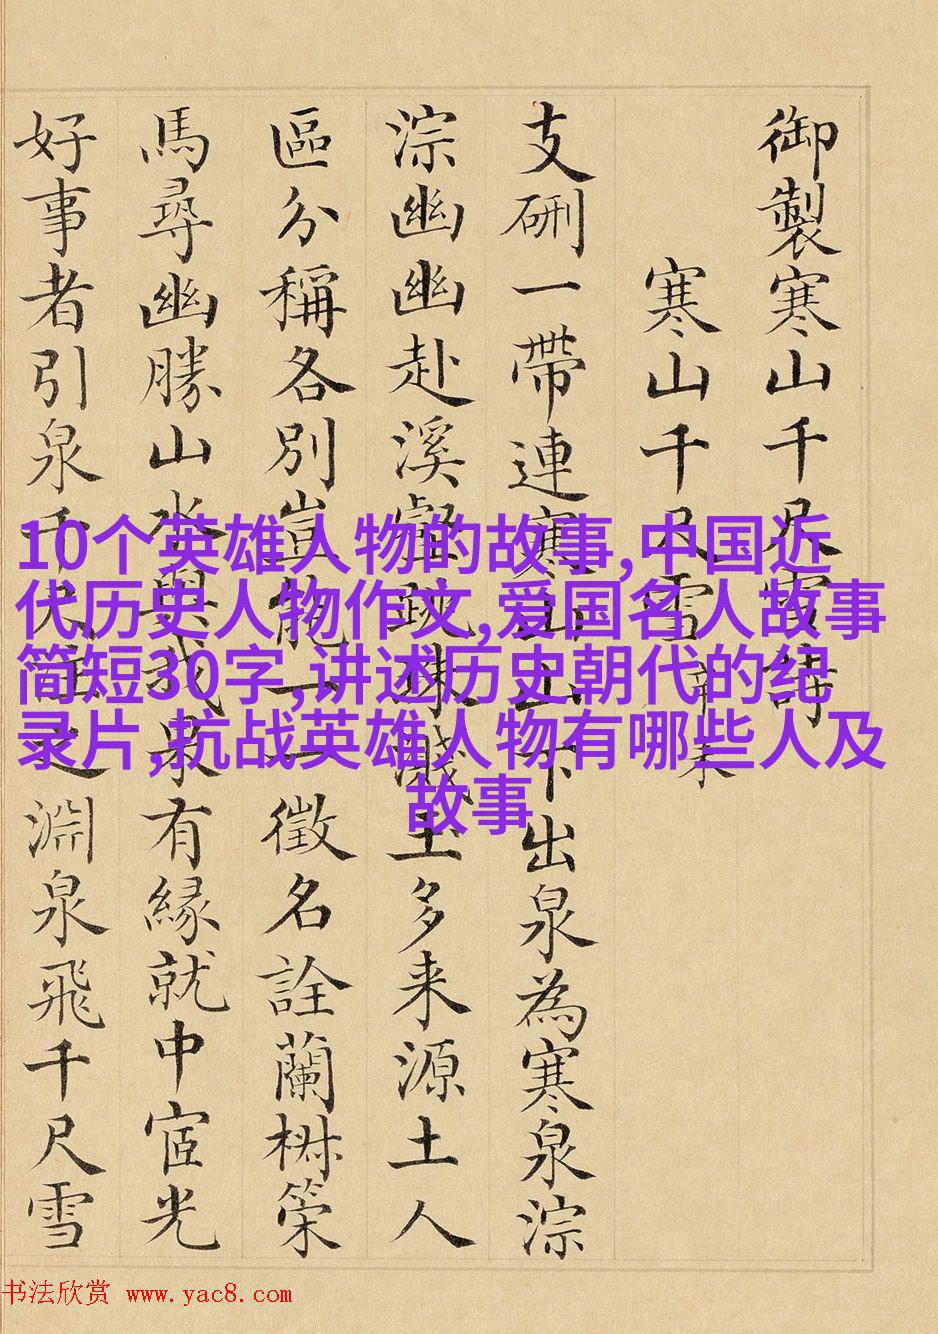 御製寒山千尺雪詩
寒山千尺雪 辛未
支硎一帶連寒山山下出泉為寒泉淙
淙幽幽赴溪壑跳珠濺玉多来源土人
區分稱各別豈能一一徵名詮蘭
馬尋幽勝山水與我果有緣就中宧光
好事者引泉千注之淵泉飛千尺雪
10个英雄人物的故事,中国近
代历史人物作文,爱国名人故事
简短30字,讲述历史朝代的纪
录片,抗战英雄人物有哪些人及
故事
书法欣赏 www.yac8.com